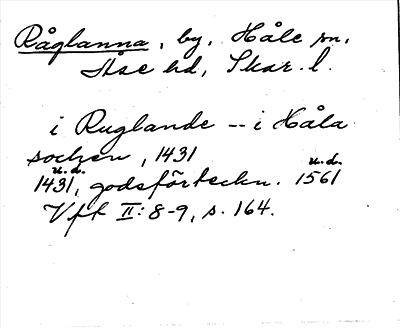 Råglanna, by, Håle sn,
Åse hd, Skar. l.
i Ruglande -- i Håla
socken, 1431
u.d. u.d.
1431, godsförteckn. 1561
Vft II:8-9, s. 164.